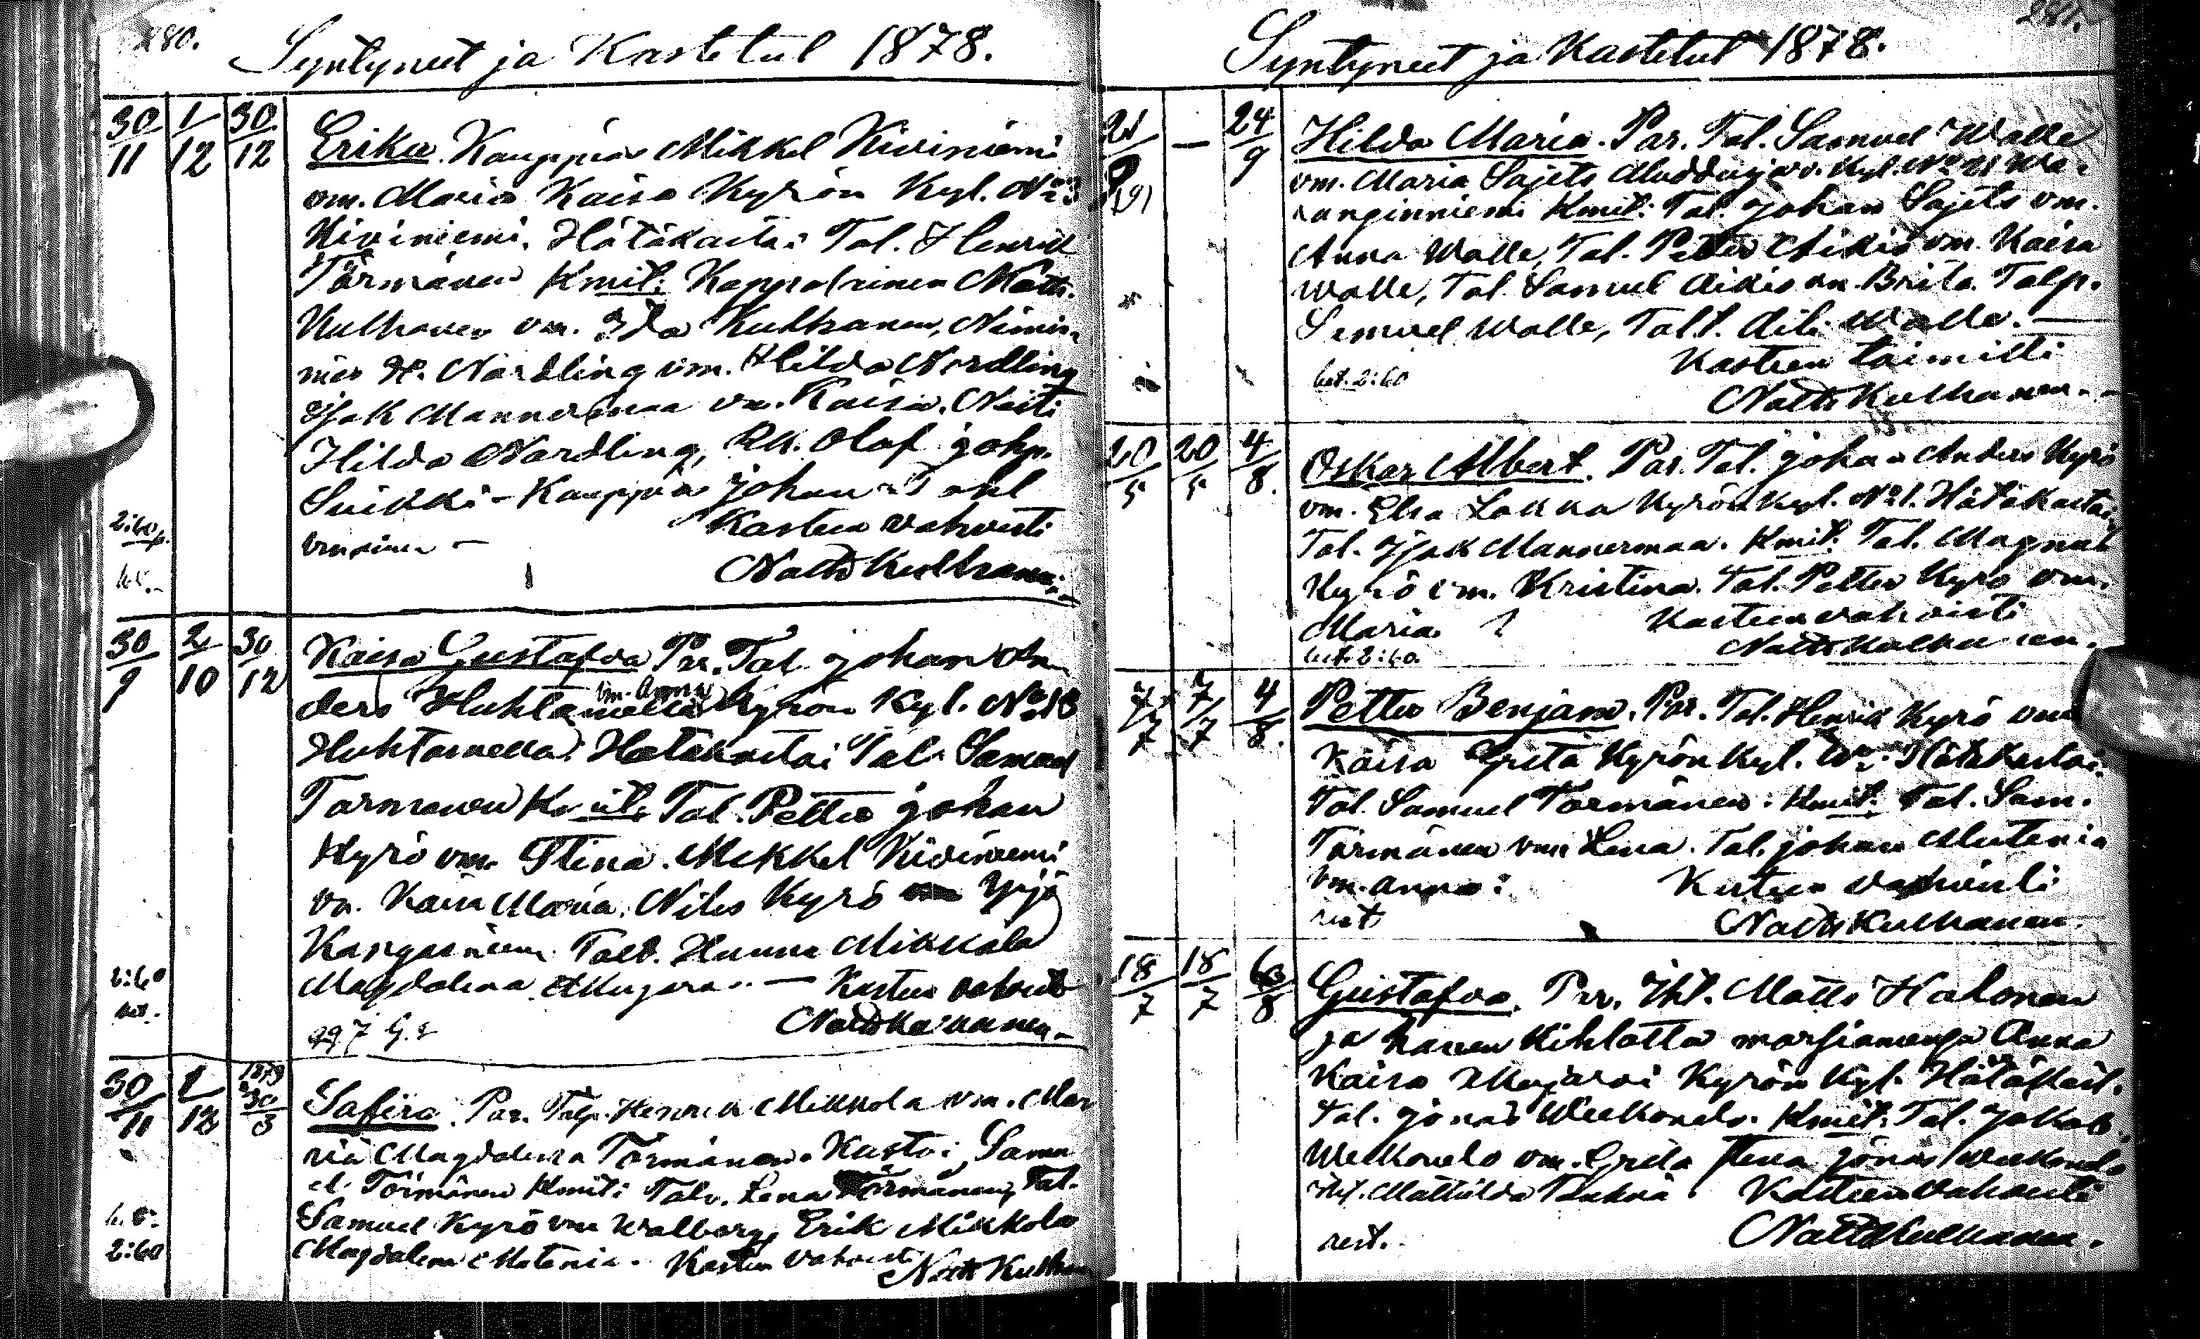 280.
Syntyneet ja Kastetut 1878.
30/11 1/12 30/12
Erika. Kauppias Mikkel Kiviniemi
vm. Maria Kaisa Kyrön Kyl. No 3
Kiviniemi. Hätäkastoi Tal. Henrik
Törmänen Kmit: Kappalainen Matts
Kulhanen vm. Ida Kulhanen, Nimis-
mies H. Nordling vm. Hilda Nordling
Isak Mannermaa vm. Kaisa. Neiti
Hilda Nordling, Olof Johp.
Suikki - Kauppias Johan
vaimon - Kasteen vahvisti
Matts Kulhanen.
2:60p.
30/9 2/10 30/12
Kaisa Gustafva Par. Tal. Johan An
vm. Anna
ders Huhtamella Kyrön Kyl. No 18
Huhtamella. Hätäkastoi Tal. Samuel
Törmänen Kmit. Tal. Petter Johan
Kyrö vm. Stina. Mikkel Kiviniemi
vm. Kaisa Maria. Nils Kyrö Yrjö
Kangasniemi. Hanna Mikkola
Magdalena Mujärvi. — Kasteen vahvisti
2:60
30/11 1/12 1879 30/3
Safira. Par. Talp. Henrik Mikkola vm. Ma
ria Magdalena Törmänen. Kastoi Samu
el Törmänen Kmit: Talv. Lena Törmänen, Tal.
Samuel Kyrö vm Walborg, Erik Mikkola
Magdalena Mutenia. Kasteen vahvisti
Matts Kulhanen
2:60
281.
Syntyneet ja Kastetut 1878.
21/ — 24/9
Hilda Maria. Par. Tal. Samuel Walle
vm. Maria Sajets Muddusjärvi Kyl. No 21 Wa-
ranginniemi Kmit: Tal. Johan Sajets vm.
Anna Walle, Tal. Petter Aikio vm. Kaisa
Walle, Tal. Samuel Aikio vm. Brita. Talp.
Samuel Walle, Talt. Aili Walle. —
Kasteen toimitti
2:60
Matts Kulhanen.
20/5 20/5 4/8
Oskar Albert. Par. Tal. Johan Anders Kyrö
vm. Elsa Lakka Kyrön Kyl. No 1. Hätäkastoi
Tal. Isak Mannermaa. Kmit: Tal. Magnus
Kyrö vm. Kristina. Tal. Petter Kyrö vm.
Maria. Kasteen vahvisti
2:60. Matts Kulhanen.
7/7 7/7 4/8
Petter Benjam. Par. Tal. Henrik Kyrö vm
Kaisa Greta Kyrön Kyl. Hätäkastoi
Tal. Samuel Törmänen. Kmit: Tal. Sam.
Törmänen vm Lena. Tal. Johan Mutenia
vm. Anna. Kasteen vahvisti
rest. Matts Kulhanen.
18/7 18/7 6/8
Gustafva. Par. Iht. Matts Halonen
ja hänen Kihlattu morsiamensa Anna
Kaisa Mujärvi Kyrön Kyl. Hätäkast.
Tal. Jonas Weskonelo. Kmit: Tal. Jakob
Weskonelo vm. Greta Stina Jonas Weskonelo
Iht. Mathilda Kasteen vahvisti
rest. Matts Kulhanen.